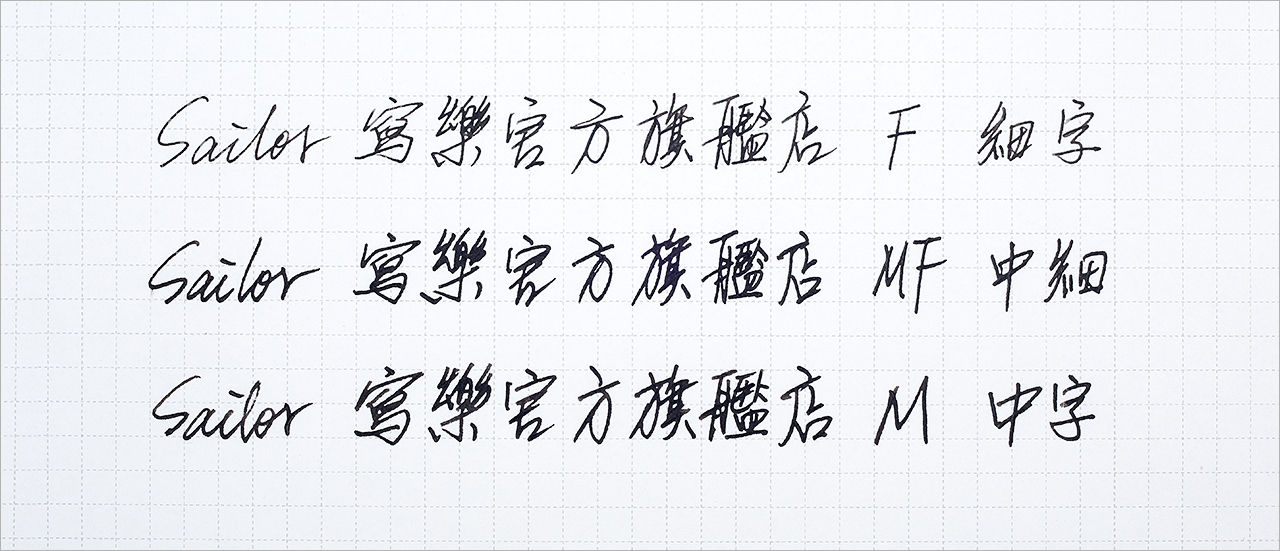 Sailor 寫樂官方旗艦店 F 細字
Sailor 寫樂官方旗艦店 MF 中細
Sailor 寫樂官方旗艦店 M 中字